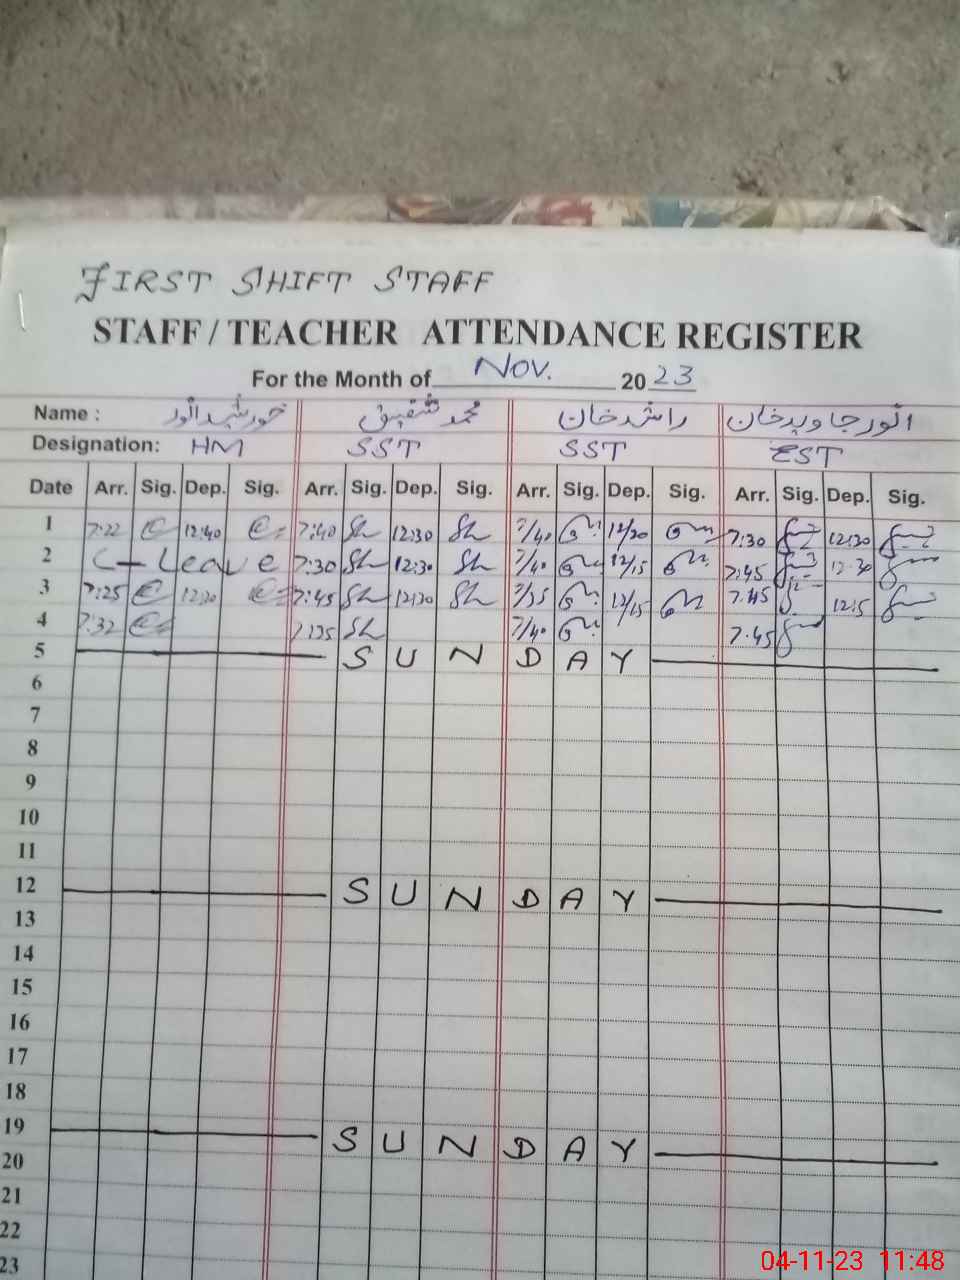 FIRST SHIFT STAFF
STAFF / TEACHER ATTENDANCE REGISTER
For the Month of Nov. 20 23
Name : خورشید انور محمد شفیق راشد خان انور جاوید خان
Designation: HM SST SST EST
Date Arr. Sig. Dep. Sig. Arr. Sig. Dep. Sig. Arr. Sig. Dep. Sig. Arr. Sig. Dep. Sig.
1 7:22 12:40 7:40 12:30 7/40 12/20 7:30 12:30
2 C-Leave 7:30 12:30 7/40 12/15 7:45 12:30
3 7:25 12:30 7:45 12:30 7/35 12/15 7:45 12:15
4 7:32 7:35 7/40 7:45
5 SUNDAY
6
7
8
9
10
11
12 SUNDAY
13
14
15
16
17
18
19 SUNDAY
20
21
22
23
04-11-23 11:48